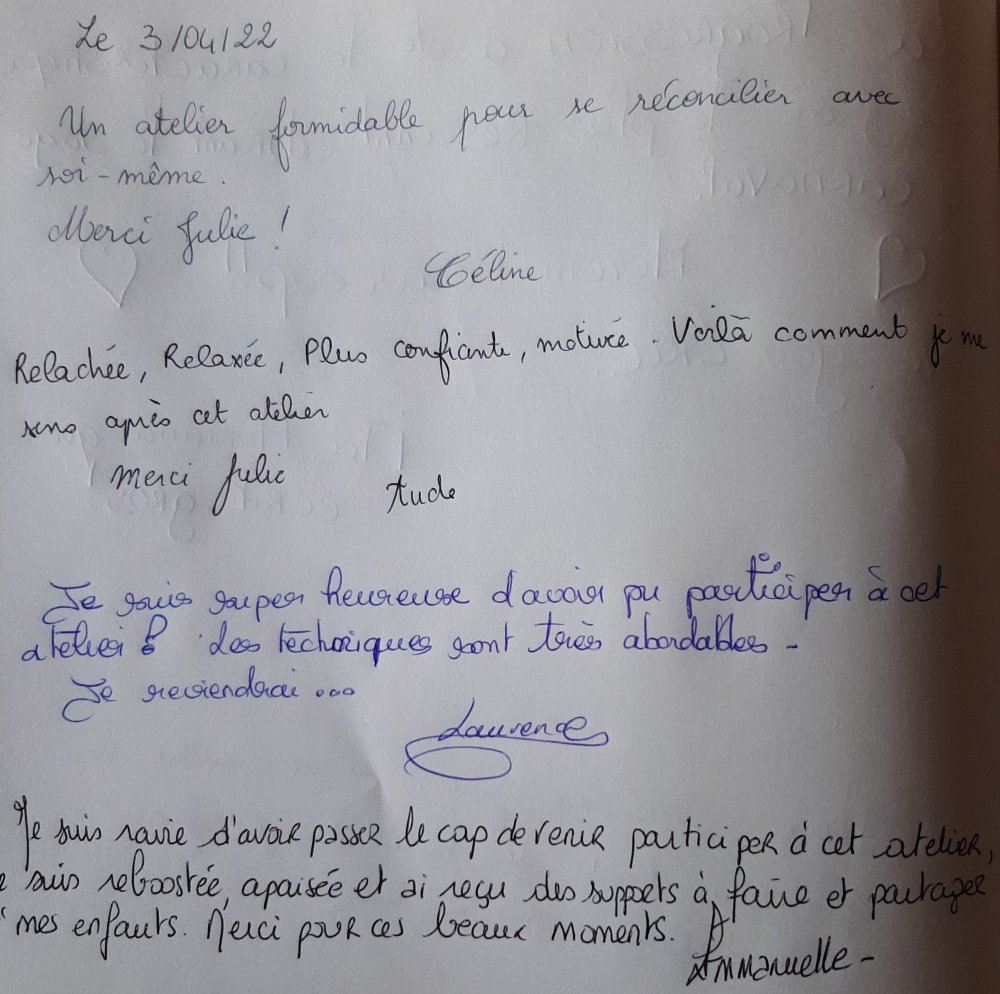 Le 3/04/22
Un atelier formidable pour se réconcilier avec
soi-même.
Merci Julie !
Céline
Relachée, Relaxée, Plus confiante, motivée. Voilà comment je me
sens après cet atelier
Merci Julie
Aude
Je suis super heureuse d'avoir pu participer à cet
atelier ! Les techniques sont très abordables -
Je reviendrai ...
Laurence
Je suis ravie d'avoir passer le cap de venir participer à cet atelier,
suis reboostée, apaisée et ai reçu des supports à faire et partager
mes enfants. Merci pour ces beaux moments.
Emmanuelle -